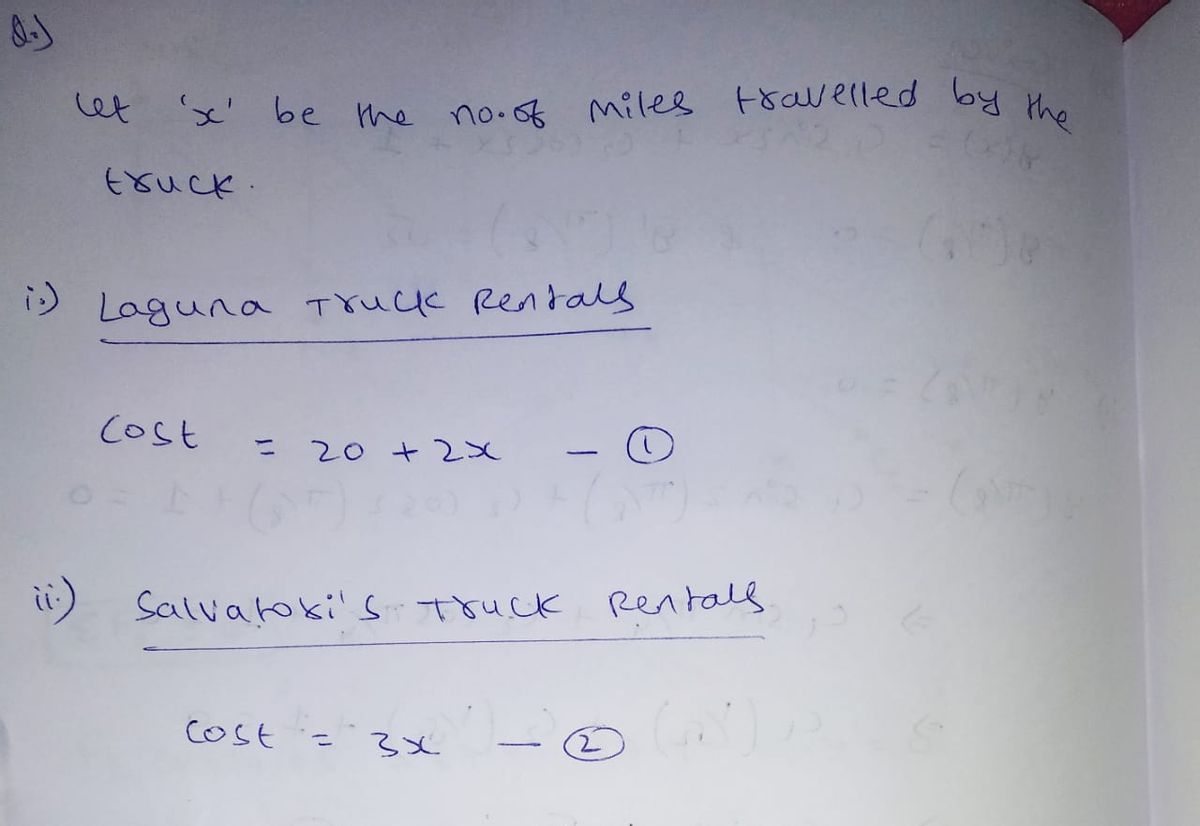 Q.)
Let 'x' be the no. of miles travelled by the
truck.
i.) Laguna Truck Rentals
Cost = 20 + 2x - ①
ii.) Salvatori's Truck Rentals
Cost = 3x - ②